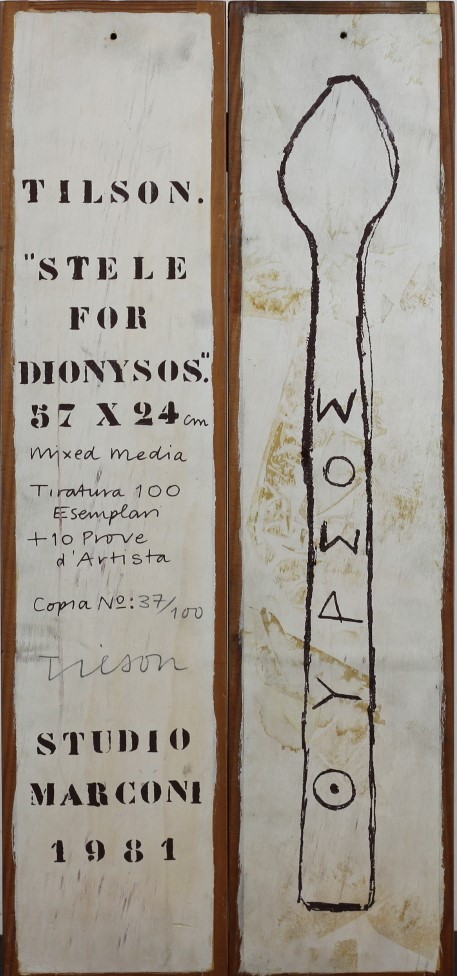 TILSON.
"STELE
FOR
DIONYSOS."
57 X 24 cm
Mixed media
Tiratura 100
Esemplari
+10 Prove
d'Artista
Copia Nº: 37/100
Tilson
STUDIO
MARCONI
1981
ΘΥΡΣΟΣ